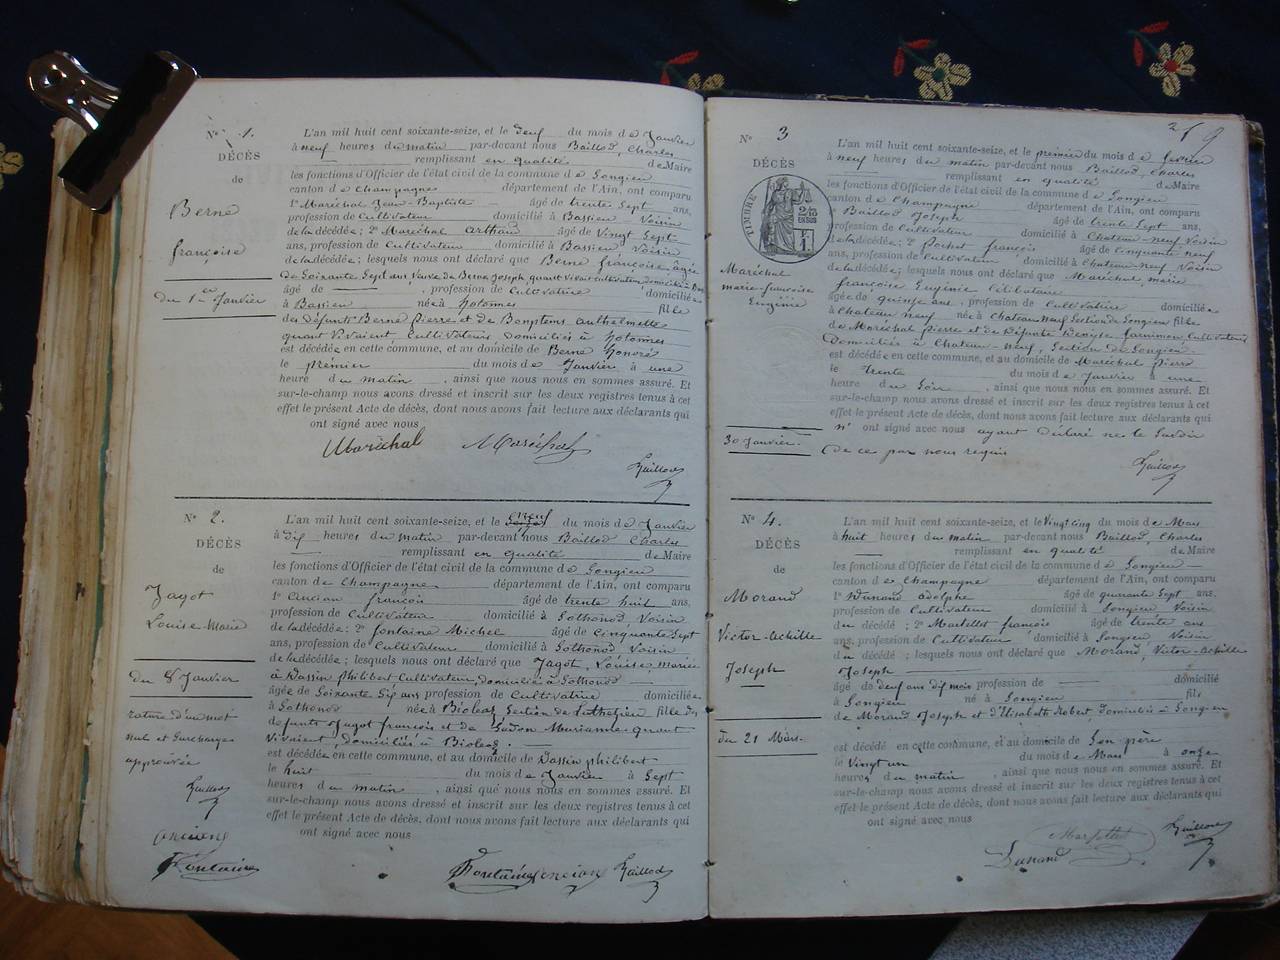 N° 1.
DÉCÈS
de
Berne
françoise
du 1er Janvier
L'an mil huit cent soixante-seize, et le deuf du mois de Janvier
à neuf heures du matin par-devant nous Baillod, Charles
remplissant en qualité de Maire
les fonctions d'Officier de l'état civil de la commune de Songieu
canton de Champagne département de l'Ain, ont comparu
1° Maréchal Jean-Baptiste âgé de trente Sept ans,
profession de Cultivateur domicilié à Bassieu Voisin
de la décédée; 2° Maréchal arthaud âgé de Vingt Sept
ans, profession de Cultivateur domicilié à Bassieu Voisin
de la décédée; lesquels nous ont déclaré que Berne françoise, âgée
de Soixante Sept ans Veuve de Berne Joseph, quant vivait cultivateur domicilié à
âgé de , profession de Cultivatrice domiciliée
à Bassieu née à hotonnes fille
des défunts Berne Pierre et de Bonptems authelmette
quant Vivaient, Cultivateurs domiciliés à hotonnes
est décédée en cette commune, et au domicile de Berne honoré
le premier du mois de Janvier à une
heure du matin , ainsi que nous nous en sommes assuré. Et
sur-le-champ nous avons dressé et inscrit sur les deux registres tenus à cet
effet le présent Acte de décès, dont nous avons fait lecture aux déclarants qui
ont signé avec nous
Maréchal Maréchal
Baillod
N° 2.
DÉCÈS
de
Jagot
Louise-Marie
Du 8 Janvier
rature d'un mot
nul et Surcharges
approuvée
Baillod
Ancian
Fontaine
L'an mil huit cent soixante-seize, et le neuf du mois de Janvier
à dix heures du matin par-devant nous Baillod Charles
remplissant en qualité de Maire
les fonctions d'Officier de l'état civil de la commune de Songieu
canton de Champagne département de l'Ain, ont comparu
1° Ancian françois âgé de trente huit ans,
profession de Cultivateur domicilié à Sothonod Voisin
de la décédée; 2° fontaine Michel âgé de Cinquante Sept
ans, profession de Cultivateur domicilié à Sothonod, Voisin
de la décédée; lesquels nous ont déclaré que Jagot, Louise, mariée
à Dassin Philibert Cultivateur, domiciliée à Sothonod
âgée de Soixante Six ans profession de Cultivatrice domiciliée
à Sothonod née à Bioleaz Section de Luthézieu fille des
défunts Jagot françois et de Marianne quant
vivaient, domiciliés à Bioleaz.
est décédée en cette commune, et au domicile de Dassin philibert
le huit du mois de Janvier à Sept
heures du matin , ainsi que nous nous en sommes assuré. Et
sur-le-champ nous avons dressé et inscrit sur les deux registres tenus à cet
effet le présent Acte de décès, dont nous avons fait lecture aux déclarants qui
ont signé avec nous
Fontaine Ancian Baillod
N° 3
DÉCÈS
TIMBRE
2/10
EN SUS
Maréchal
marie-françoise
Eugénie
30 Janvier.
L'an mil huit cent soixante-seize, et le premier du mois de fevrier
à neuf heures du matin par-devant nous Baillod, Charles
remplissant en qualité de Maire
les fonctions d'Officier de l'état civil de la commune de Songieu
canton de Champagne département de l'Ain, ont comparu
1° Baillod Joseph âgé de trente Sept ans,
profession de Cultivateur domicilié à Chateau-neuf Voisin
de la décédée; 2° Pochet françois âgé de Cinquante neuf
ans, profession de Cultivateur domicilié à Chateau neuf Voisin
de la décédée; lesquels nous ont déclaré que Maréchal, marie
françoise Eugénie Célibataire
âgée de quinze ans, profession de Cultivatrice domiciliée
à Chateau neuf née à Chateau neuf Section de Songieu fille
de Maréchal pierre et de Défunte Cultivateurs
Domiciliés à Chateau-neuf, Section de Songieu.
est décédée en cette commune, et au domicile de Maréchal pierre
le trente du mois de Janvier à une
heure du Soir , ainsi que nous nous en sommes assuré. Et
sur-le-champ nous avons dressé et inscrit sur les deux registres tenus à cet
effet le présent Acte de décès, dont nous avons fait lecture aux déclarants qui
n' ont signé avec nous ayant déclaré ne le Savoir
de ce par nous requis
Baillod
N° 4.
DÉCÈS
de
Morand
Victor-achille
Joseph
du 21 Mars.
L'an mil huit cent soixante-seize, et le Vingt cinq du mois de Mars
à huit heures du matin par-devant nous Baillod, Charles
remplissant en qualité de Maire
les fonctions d'Officier de l'état civil de la commune de Songieu
canton de Champagne département de l'Ain, ont comparu
1° Dunand adolphe âgé de quarante Sept ans,
profession de Cultivateur domicilié à Songieu Voisin
du décédé; 2° Martellet françois âgé de trente ans
ans, profession de Cultivateur domicilié à Songieu, Voisin
du décédé; lesquels nous ont déclaré que Morand, Victor-achille
Joseph
âgé de deux ans dix mois profession de domicilié
à Songieu né à Songieu fils
de Morand Joseph et d'Elisabeth Robert, domiciliés à Songieu
est décédé en cette commune, et au domicile de Son père
le Vingt un du mois de Mars à onze
heures du matin , ainsi que nous nous en sommes assuré. Et
sur-le-champ nous avons dressé et inscrit sur les deux registres tenus à cet
effet le présent Acte de décès, dont nous avons fait lecture aux déclarants qui
ont signé avec nous
Martellet Baillod
Dunand